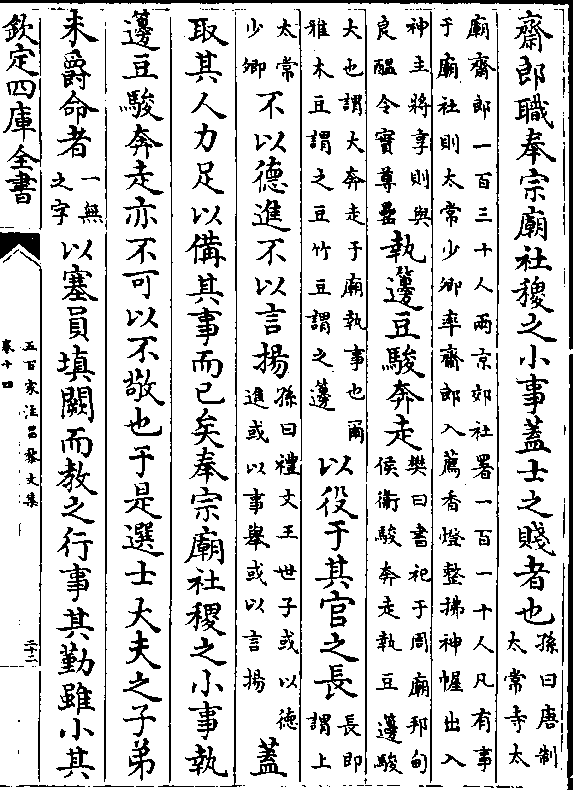 齋郎職奉宗廟社稷之小事蓋士之賤者也孫曰唐制
太常寺太
廟齋郎一百三十人兩京郊社署一百一十人凡有事
于廟社則太常少卿率齋郎入薦香燈整拂神幄出入
神主將享則與
良醞令實尊罍
執籩豆駿奔走
樊曰書祀于周廟邦甸
侯衛駿奔走執豆籩駿
大也謂大奔走于廟執事也爾
雅木豆謂之豆竹豆謂之籩
以役于其官之長
長即
謂上
太常
少卿
不以德進不以言揚
孫曰禮文王世子或以德
進或以事舉或以言揚
蓋
取其人力足以備其事而已矣奉宗廟社稷之小事執
邊豆駿奔走亦不可以不敬也于是選士大夫之子弟
未爵命者
一無
之字
以塞員填闕而教之行事其勤雖小其
欽定四庫全書
五百家注昌黎文集
卷十四
二十二